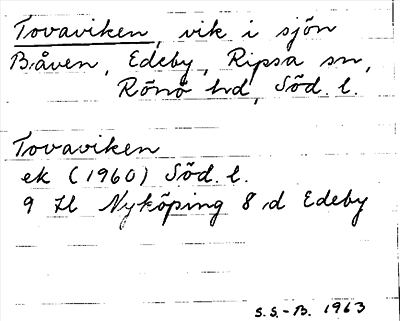 Tovaviken, vik i sjön
Båven, Edeby, Ripsa sn,
Rönö hd, Söd. l.
Tovaviken
ek (1960) Söd. l.
9 H Nyköping 8 d Edeby
S.S.-B. 1963